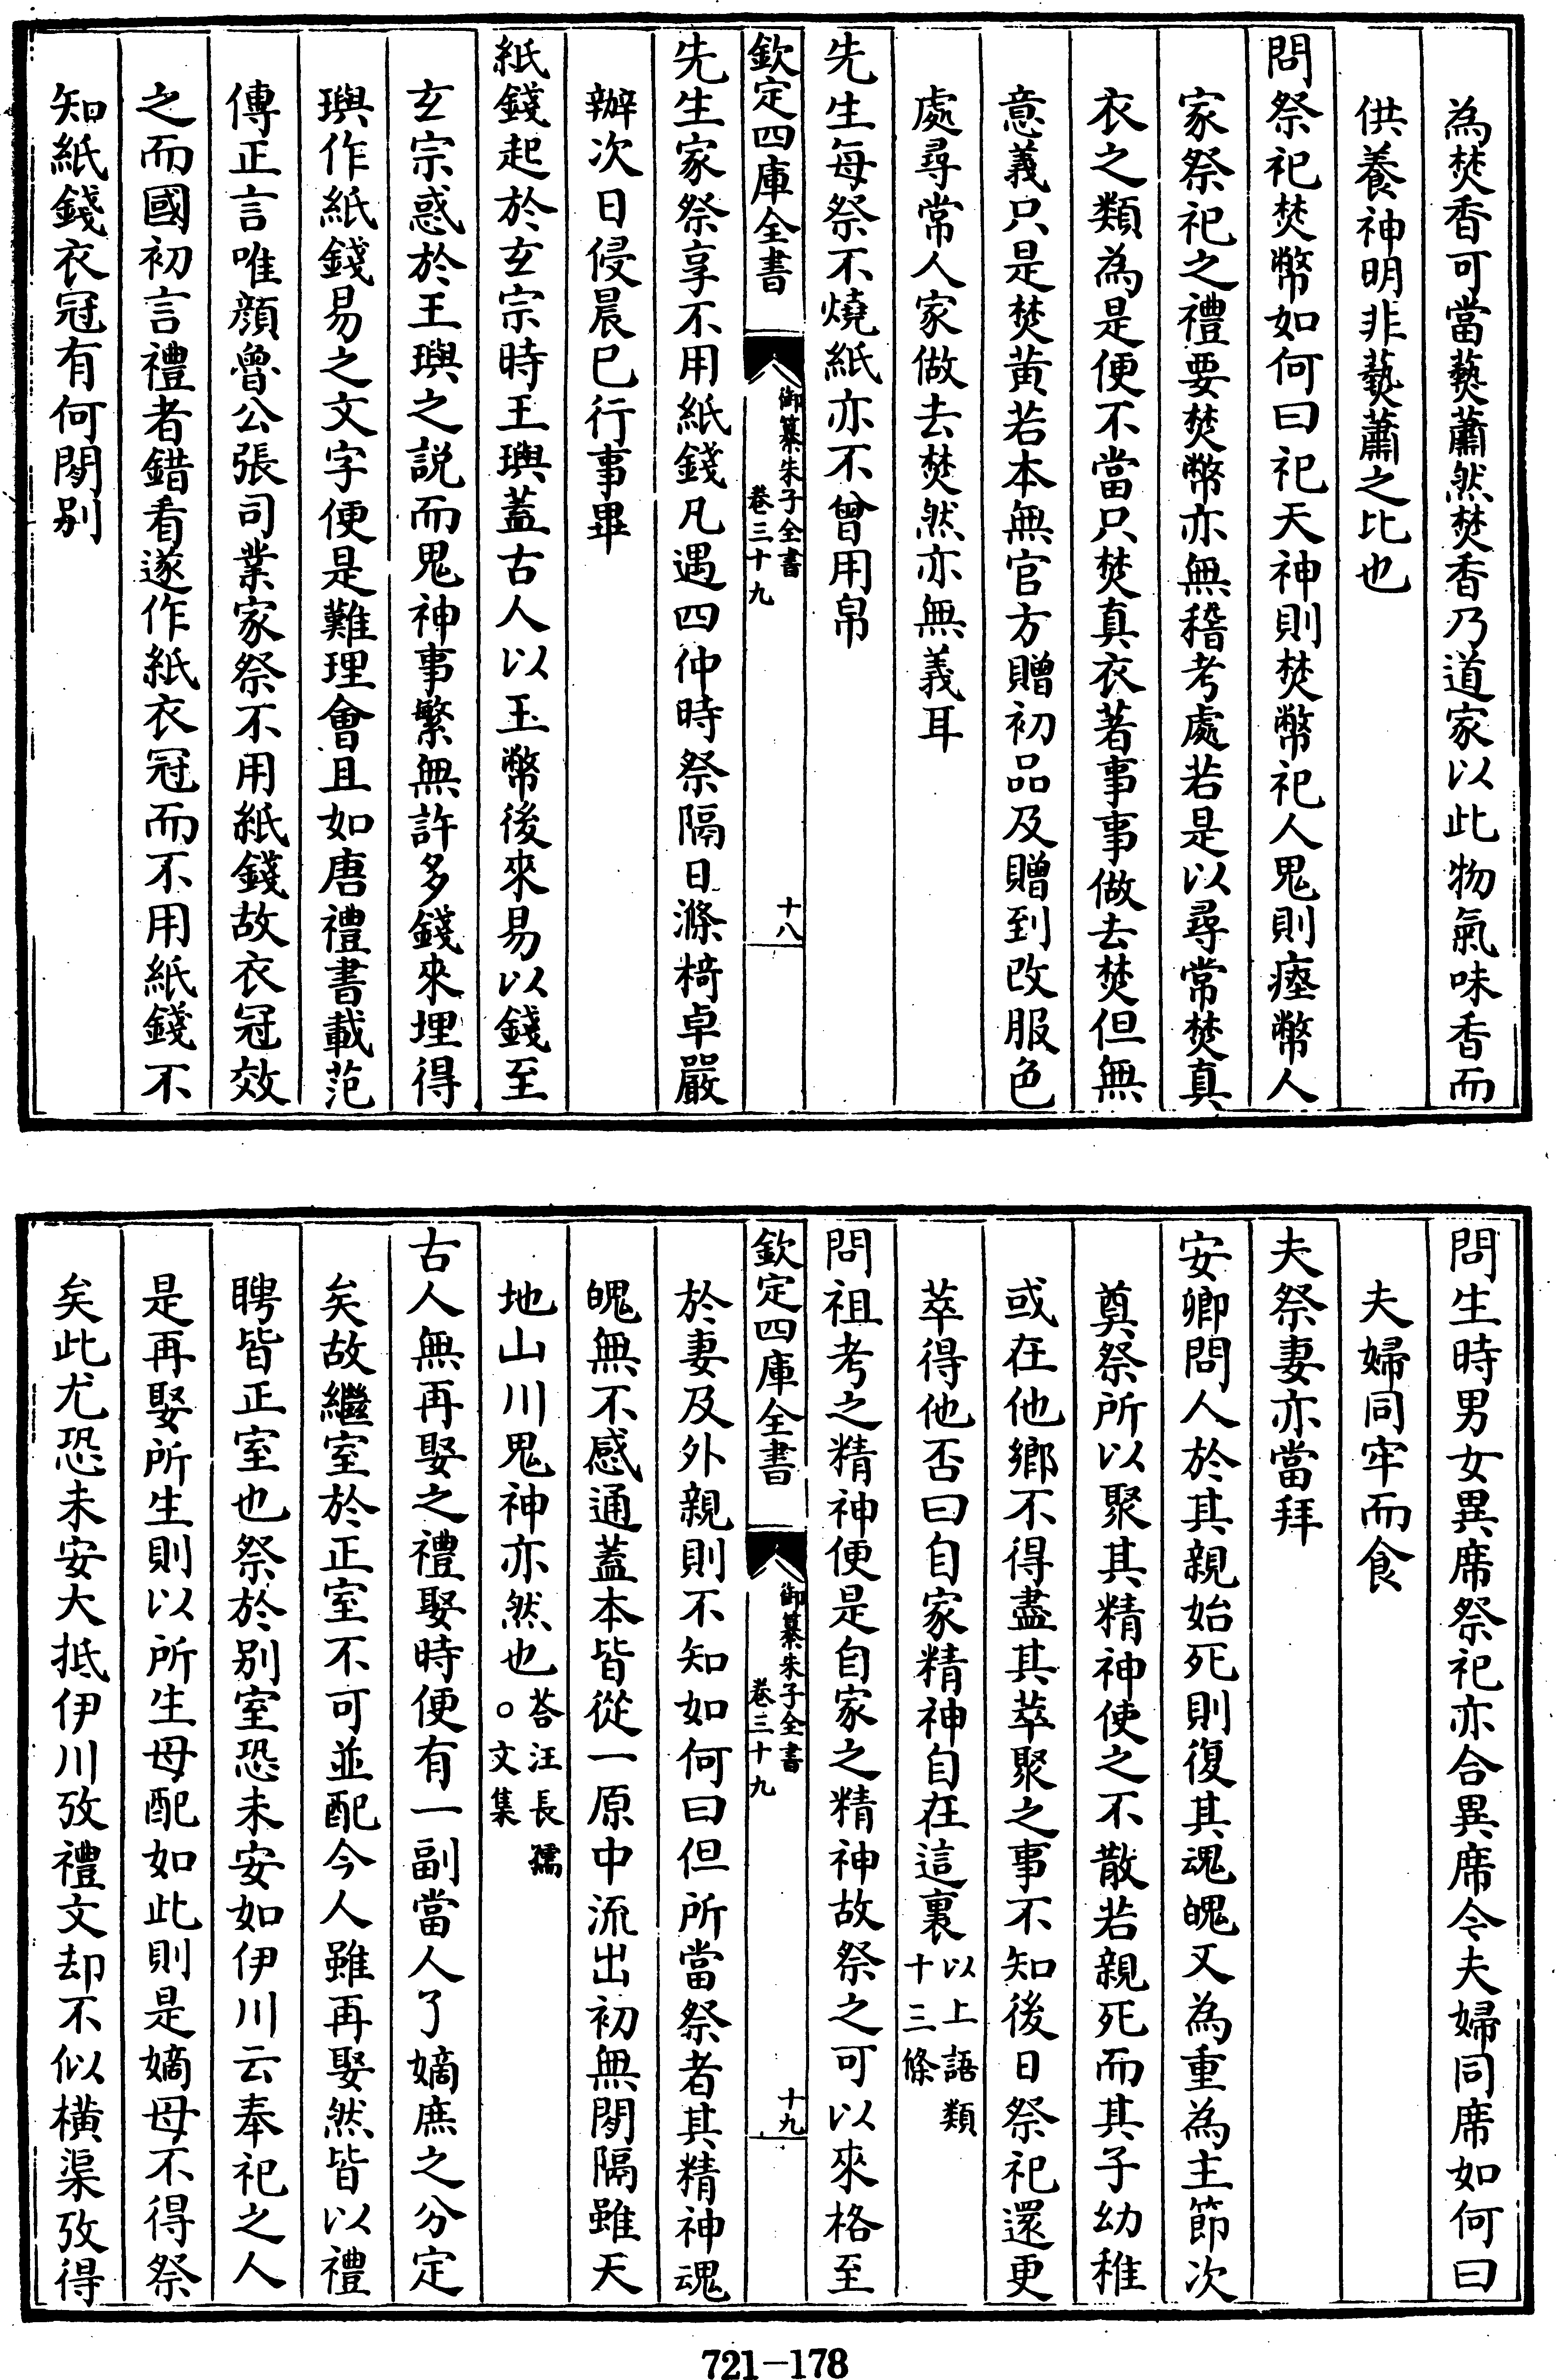 為焚香可當爇蕭然焚香乃道家以此物氣味香而
供養神明非爇蕭之比也
問祭祀焚幣如何曰祀天神則焚幣祀人鬼則瘞幣人
家祭祀之禮要焚幣亦無稽考處若是以尋常焚真
衣之類為是便不當只焚真衣著事事做去焚但無
意義只是焚黄若本無官方贈初品及贈到改服色
處尋常人家做去焚然亦無義耳
先生每祭不燒紙亦不曾用帛
欽定四庫全書
御纂朱子全書
卷三十九
十八
先生家祭享不用紙錢凡遇四仲時祭隔日滌椅卓嚴
辦次日侵晨已行事畢
紙錢起於玄宗時王璵蓋古人以玉幣後來易以錢至
玄宗惑於王璵之説而鬼神事繁無許多錢來埋得
璵作紙錢易之文字便是難理會且如唐禮書載范
傳正言唯顔魯公張司業家祭不用紙錢故衣冠效
之而國初言禮者錯看遂作紙衣冠而不用紙錢不
知紙錢衣冠有何閒别
問生時男女異席祭祀亦合異席今夫婦同席如何曰
夫婦同牢而食
夫祭妻亦當拜
安卿問人於其親始死則復其魂魄又為重為主節次
奠祭所以聚其精神使之不散若親死而其子幼稚
或在他鄉不得盡其萃聚之事不知後日祭祀還更
萃得他否曰自家精神自在這裏以上語類
十三條
問祖考之精神便是自家之精神故祭之可以來格至
欽定四庫全書
御纂朱子全書
卷三十九
十九
於妻及外親則不知如何曰但所當祭者其精神魂
魄無不感通蓋本皆從一原中流出初無閒隔雖天
地山川鬼神亦然也荅汪長孺
○文集
古人無再娶之禮娶時便有一副當人了嫡庶之分定
矣故繼室於正室不可並配今人雖再娶然皆以禮
聘皆正室也祭於别室恐未安如伊川云奉祀之人
是再娶所生則以所生母配如此則是嫡母不得祭
矣此尤恐未安大抵伊川攷禮文却不似横渠攷得
721-178